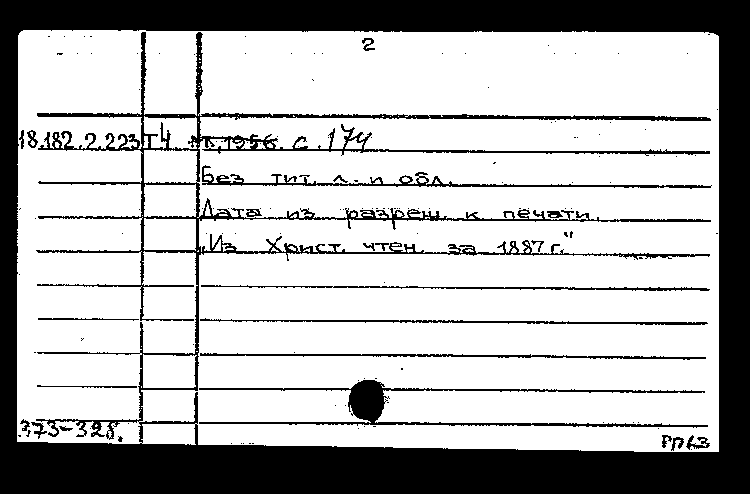 2
18.182.2.223 Т4 с. 174
Без тит. л. и обл.
Дата из разреш. к печати.
„Из Христ. чтен. за 1887 г."
373-328.